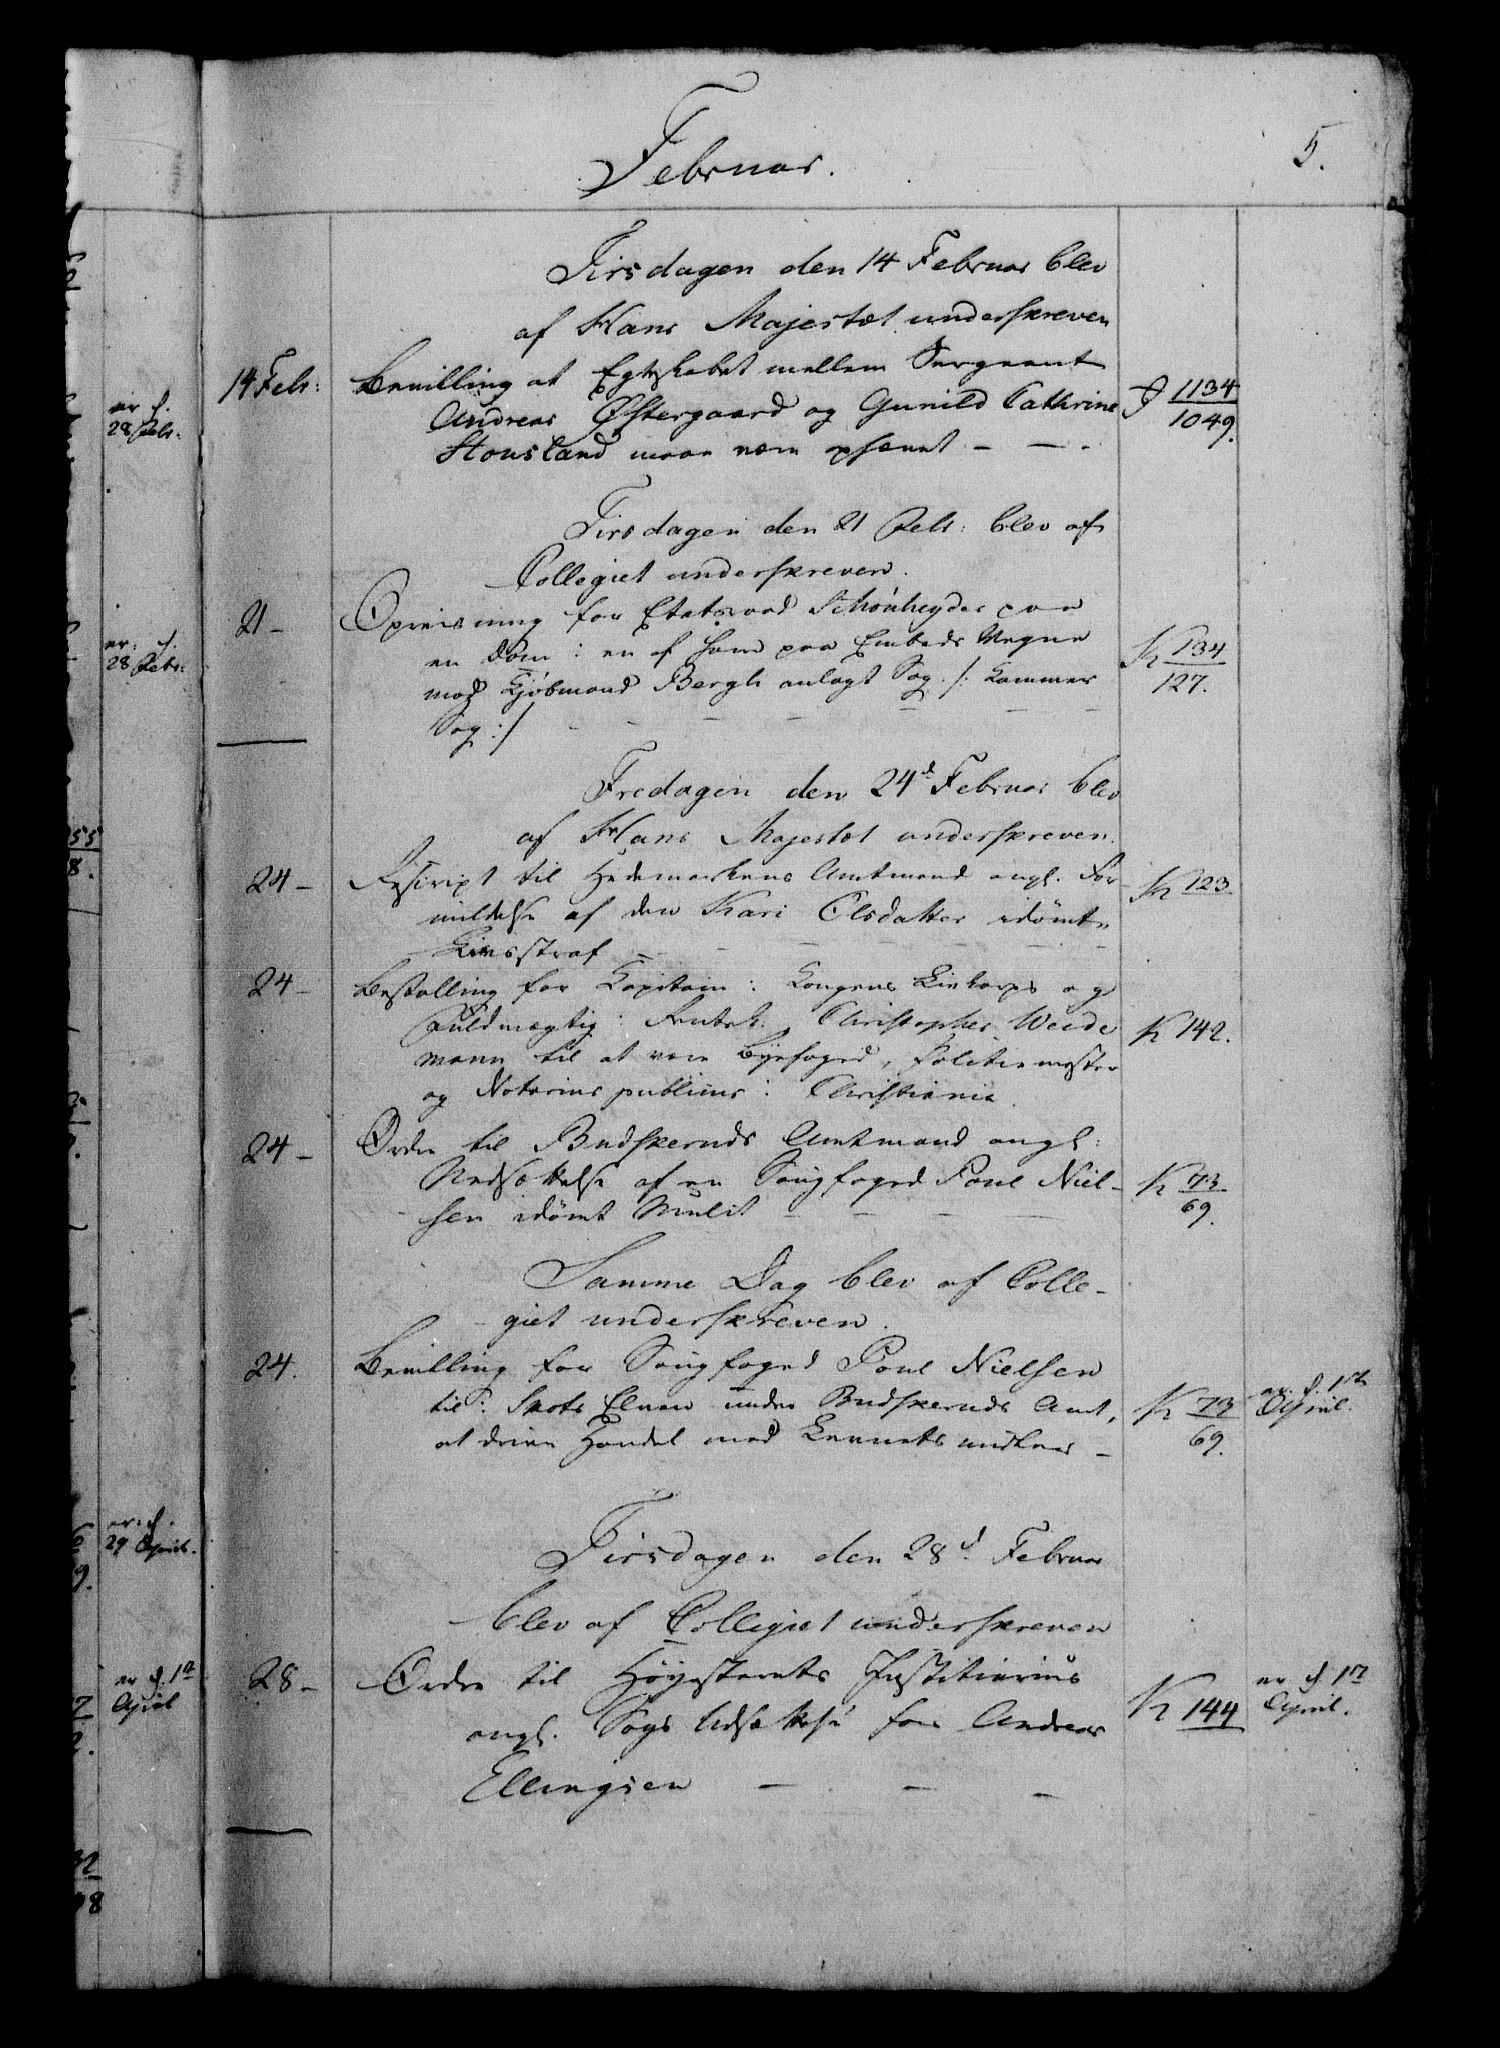 Februar.
5.
Tirsdagen den 14 Februar blev
af Hans Majestæt underskreven
14 Febr:
Bevilling at Egteskabet mellem Sergeant
Andreas Østergaard og Gunild Cathrine
Stousland maa være ophævet – – -
1134
1049.
Tirsdagen den 21 Febr: blev af
Collegiet underskreven.
21 –
Opreisning for Etatsraad Schönheyder paa
en Dom i en af ham paa Embeds Vegne
mod Kjöbmand Bergh anlagt Sag /: Kammer
Sag :/
K 134
127.
Fredagen den 24d Februar blev
af Hans Majestæt underskreven.
24 –
Rescript til Hedemarkens Amtmand angl. For-
mildelse af den Kari Olsdatter idömte
Livsstraf
K 123
24 –
Bestalling for Kapitain i Kongens Livkorps og
Fuldmægtig i Christopher Weide
mann til at være Byefoged, Politiemester
og Notarius publicus i Christiania
K 142.
24 –
Ordre til Budskeruds Amtmand angl:
Nedsættelse af en Saugfoged Poul Niel-
sen idömt Mulct
K 73
69.
Samme Dag blev af Colle-
giet underskreven.
24.
Bevilling for Saugfoged Poul Nielsen
til i under Budskeruds Amt,
at drive Handel med
K 73
69.
er d. 1ste
April.
Tirsdagen den 28d Februar
blev af Collegiet underskreven
28 –
Ordre til Höyesterets Justitiarius
angl. Sags Udsættelse for Andreas
Ellingsen – – –
K 144
er d 1ste
April.
er d.
28 Febr.
er. d.
28 Febr:
55
8.
er. d.
29 April.
9.
er d. 1ste
April